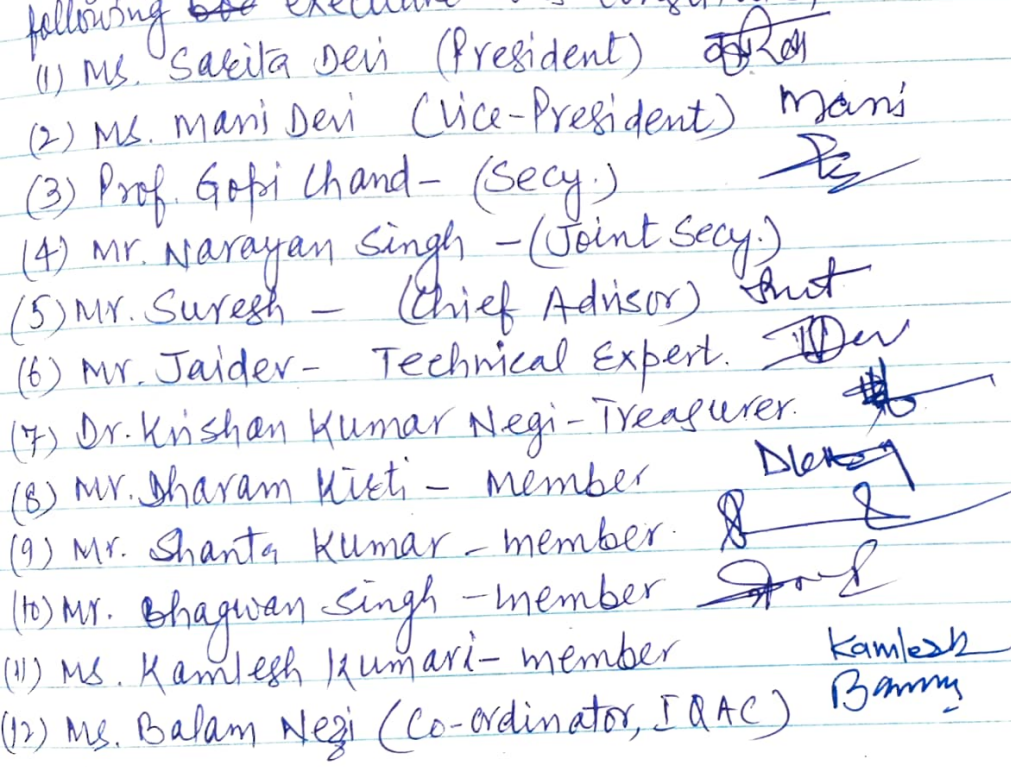 following executive
(1) Ms. Sarita Devi (President)
(2) Ms. Mani Devi (Vice-President) Mani
(3) Prof. Gopi Chand - (Secy.)
(4) Mr. Narayan Singh - (Joint Secy.)
(5) Mr. Suresh - (Chief Advisor)
(6) Mr. Jaidev - Technical Expert.
(7) Dr. Krishan Kumar Negi - Treasurer.
(8) Mr. Dharam Kirti - Member
(9) Mr. Shanta Kumar - member.
(10) Mr. Bhagwan Singh - member
(11) Ms. Kamlesh Kumari - member Kamlesh
(12) Ms. Balam Negi (Co-ordinator, IQAC)